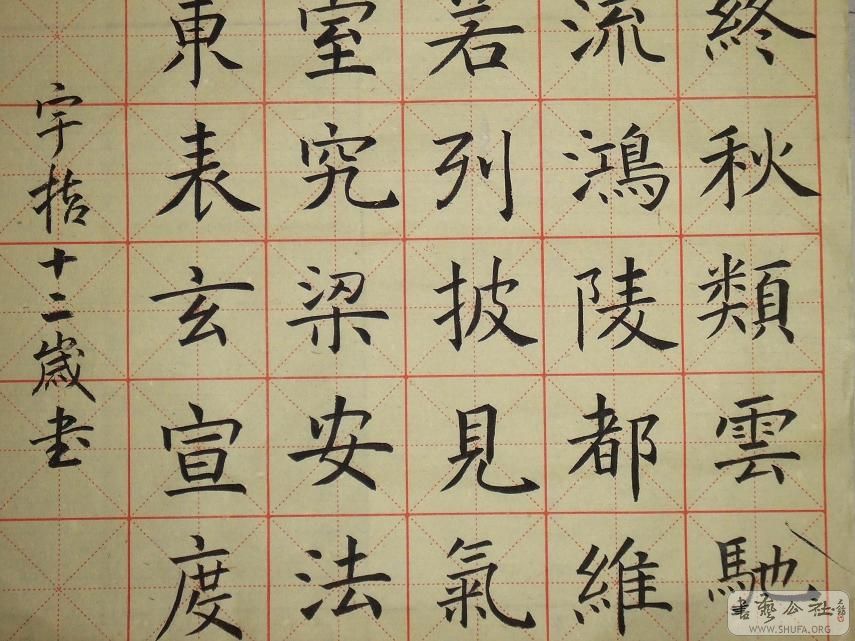 終秋類雲馳
流鴻陵都維
若列披見氣
室究梁安法
東表玄宣度
宇桔十二歲書
書藝公社
WWW.SHUFA.ORG